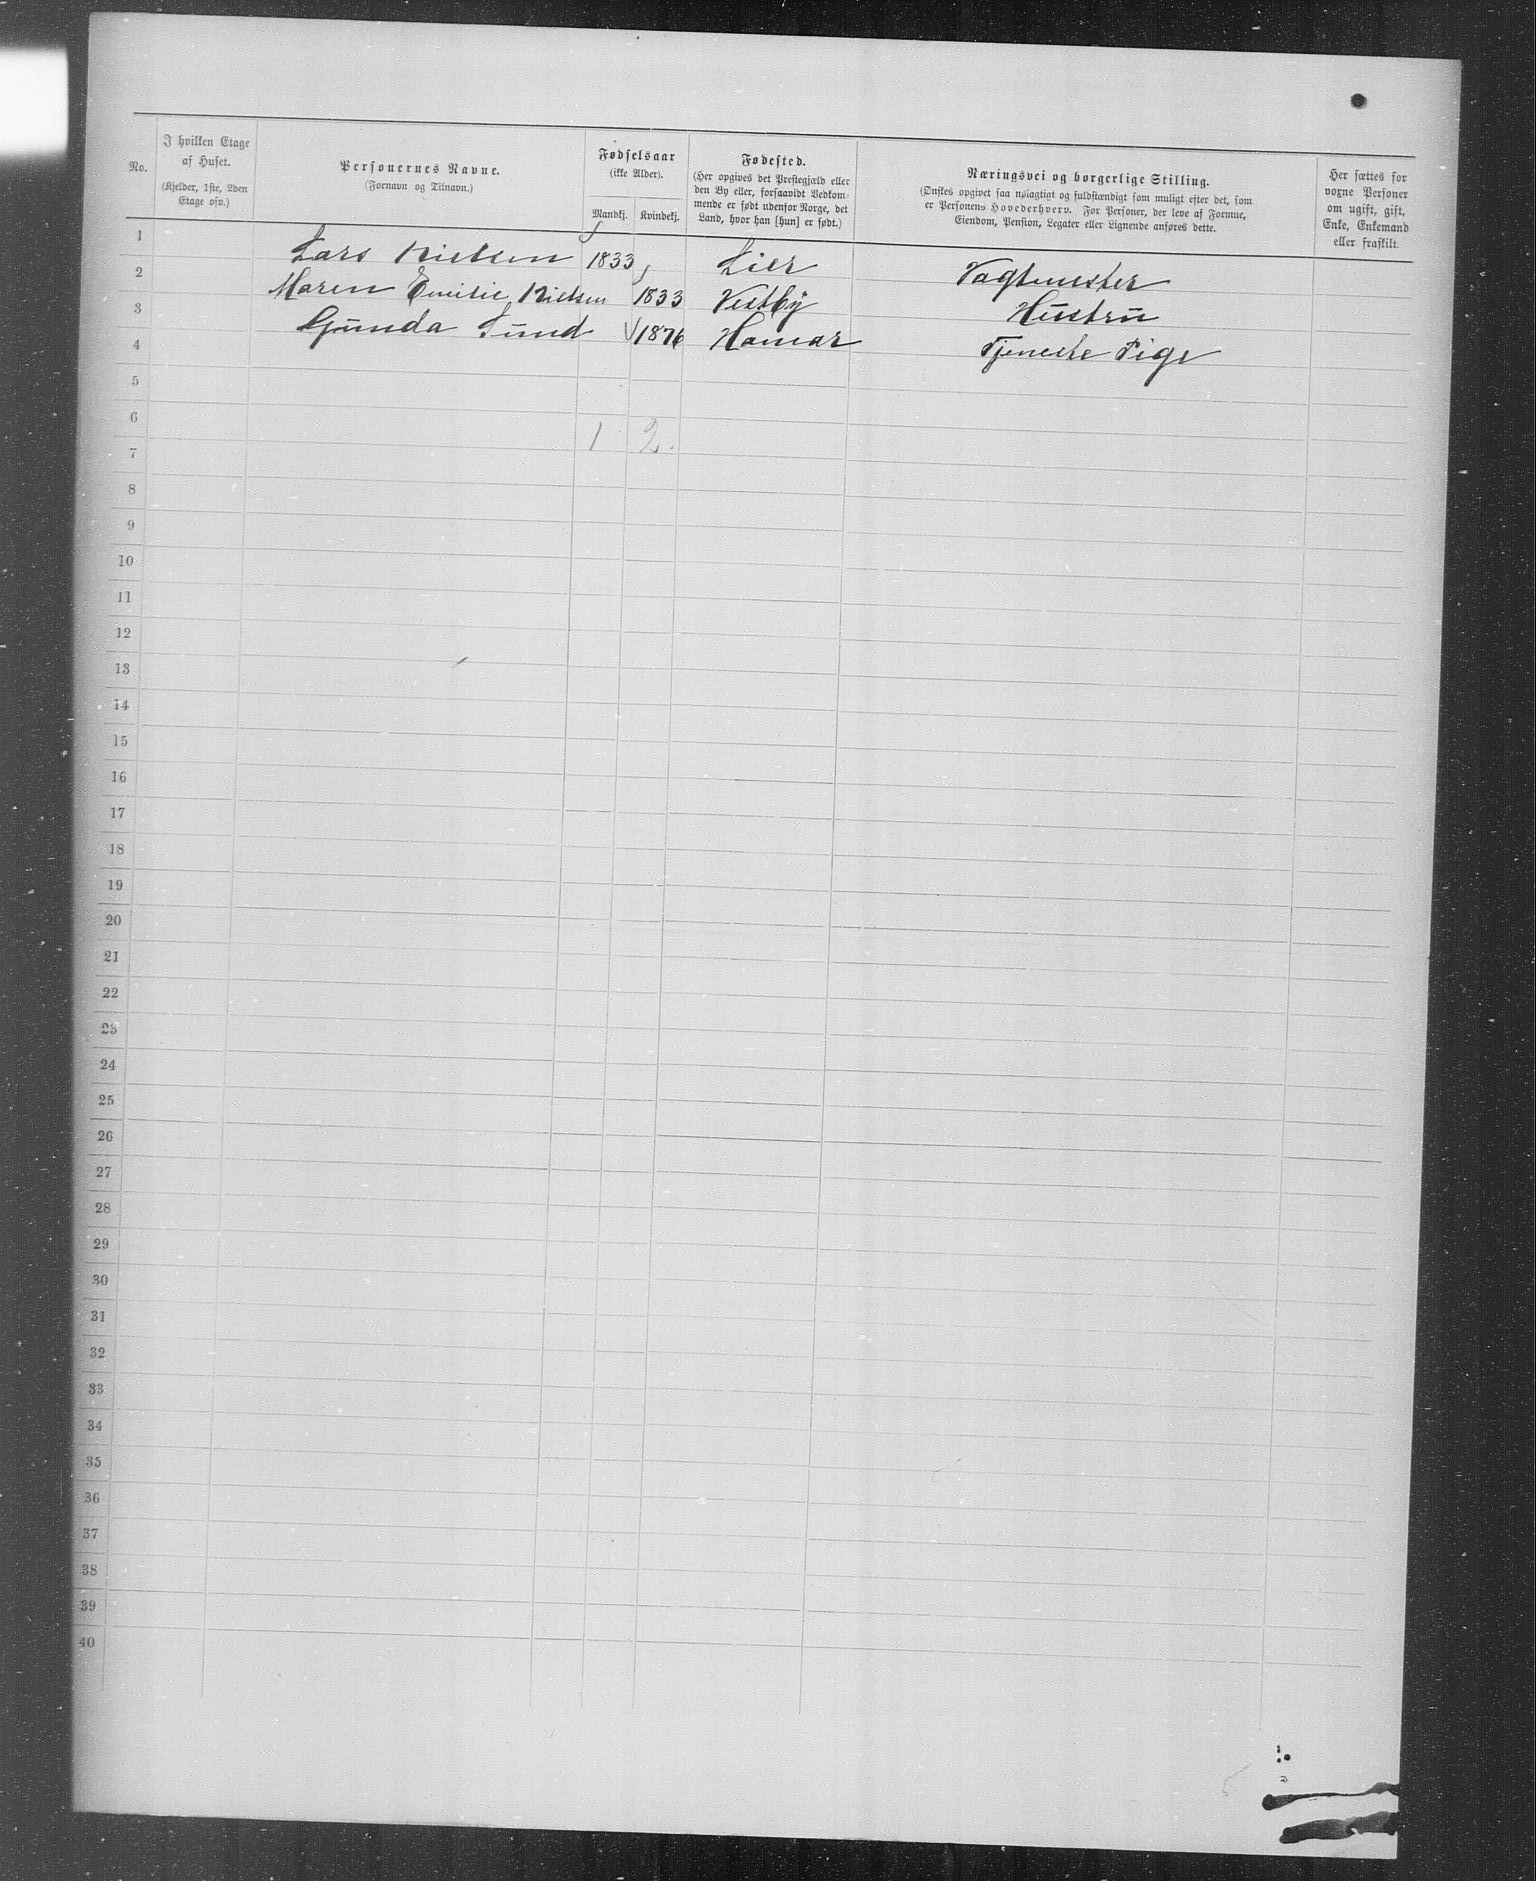 No.
I hvilken Etage
af Huset.
(Kjelder, 1ste, 2den
Etage osv.)
Personernes Navne.
(Fornavn og Tilnavn.)
Fødselsaar
(ikke Alder).
Mandkj. Kvindekj.
Fødested.
(Her opgives det Prestegjæld eller
den By eller, forsaavidt Vedkom-
mende er født udenfor Norge, det
Land, hvor han [hun] er født.)
Næringsvei og borgerlige Stilling.
(Ønskes opgivet saa nøiagtigt og fuldstændigt som muligt efter det, som
er Personens Hovederhverv. For Personer, der leve af Formue,
Eiendom, Pension, Legater eller Lignende anføres dette.
Her sættes for
voxne Personer
om ugift, gift,
Enke, Enkemand
eller fraskilt.
1 Lars Nielsen 1833 Lier Vagtmester
2 Maren Emilie Nielsen 1833 Vestby Hustru
3 Gunda Sund 1876 Hamar Tjeneste Pige
4
5
6 1 2.
7
8
9
10
11
12
13
14
15
16
17
18
19
20
21
22
23
24
25
26
27
28
29
30
31
32
33
34
35
36
37
38
39
40